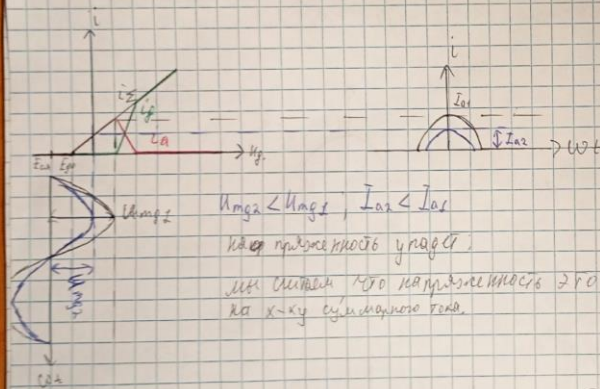 i
i
iΣ
ig
ia
Ia1
Ia2
Ug.
ωt
Eg0
Umg1
Umg2 < Umg1 ; Ia2 < Ia1
напряженность упадет.
Umg2
мы считаем что напряженность это
на х-ку суммарного тока.
ωt